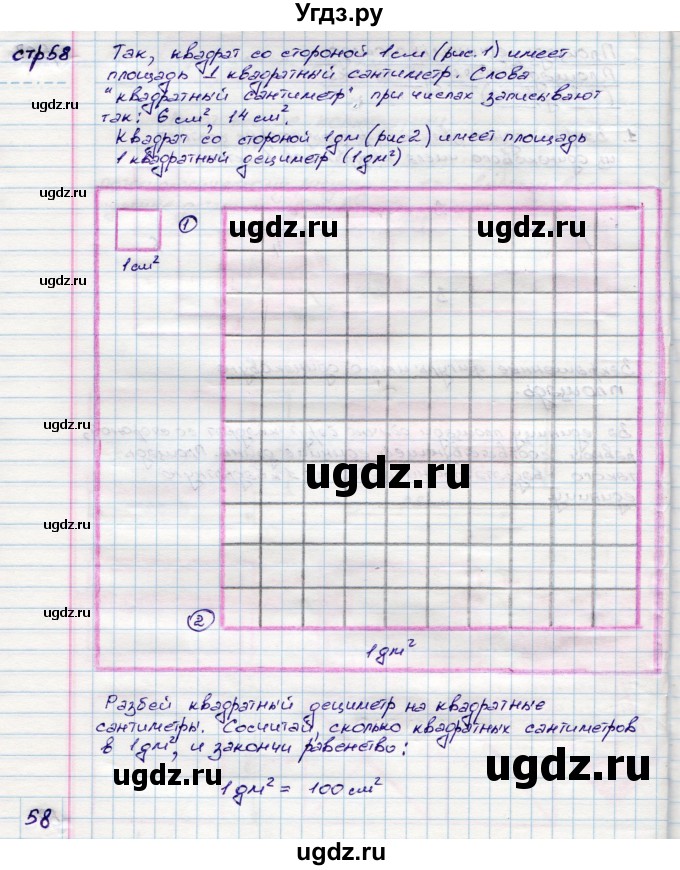 Угдз.ру
стр58
Так, квадрат со стороной 1см (рис. 1) имеет
площадь 1 квадратный сантиметр. Слова
"квадратный сантиметр", при числах записывают
так: 6 см², 14 см².
Квадрат со стороной 1дм (рис2) имеет площадь
1 квадратный дециметр (1дм²)
ugdz.ru
ugdz.ru
ugdz.ru
1
ugdz.ru
ugdz.ru
1см²
ugdz.ru
ugdz.ru
ugdz.ru
ugdz.ru
ugdz.ru
2
1дм²
Разбей квадратный дециметр на квадратные
сантиметры. Сосчитай, сколько квадратных сантиметров
в 1дм², и закончи равенство:
ugdz.ru
ugdz.ru
1дм² = 100см²
58
ugdz.ru